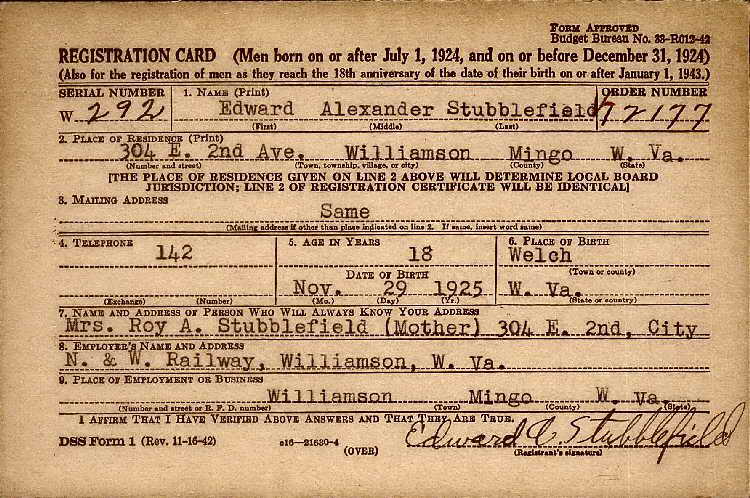 FORM APPROVED
Budget Bureau No. 33-R012-42
REGISTRATION CARD (Men born on or after July 1, 1924, and on or before December 31, 1924)
(Also for the registration of men as they reach the 18th anniversary of the date of their birth on or after January 1, 1943.)
SERIAL NUMBER 1. NAME (Print) ORDER NUMBER
W 292 Edward Alexander Stubblefield 72177
(First) (Middle) (Last)
2. PLACE OF RESIDENCE (Print)
304 E. 2nd Ave. Williamson Mingo W. Va.
(Number and street) (Town, township, village, or city) (County) (State)
[THE PLACE OF RESIDENCE GIVEN ON LINE 2 ABOVE WILL DETERMINE LOCAL BOARD
JURISDICTION; LINE 2 OF REGISTRATION CERTIFICATE WILL BE IDENTICAL]
3. MAILING ADDRESS
Same
(Mailing address if other than place indicated on line 2. If same, insert word same)
4. TELEPHONE 5. AGE IN YEARS 6. PLACE OF BIRTH
142 18 Welch
(Town or county)
DATE OF BIRTH
Nov. 29 1925 W. Va.
(Exchange) (Number) (Mo.) (Day) (Yr.) (State or country)
7. NAME AND ADDRESS OF PERSON WHO WILL ALWAYS KNOW YOUR ADDRESS
Mrs. Roy A. Stubblefield (Mother) 304 E. 2nd, City
8. EMPLOYER'S NAME AND ADDRESS
N. & W. Railway, Williamson, W. Va.
9. PLACE OF EMPLOYMENT OR BUSINESS
Williamson Mingo W. Va.
(Number and street or R. F. D. number) (Town) (County) (State)
I AFFIRM THAT I HAVE VERIFIED ABOVE ANSWERS AND THAT THEY ARE TRUE.
DSS Form 1 (Rev. 11-16-42) 16-21630-4 Edward A Stubblefield
(OVER) (Registrant's signature)